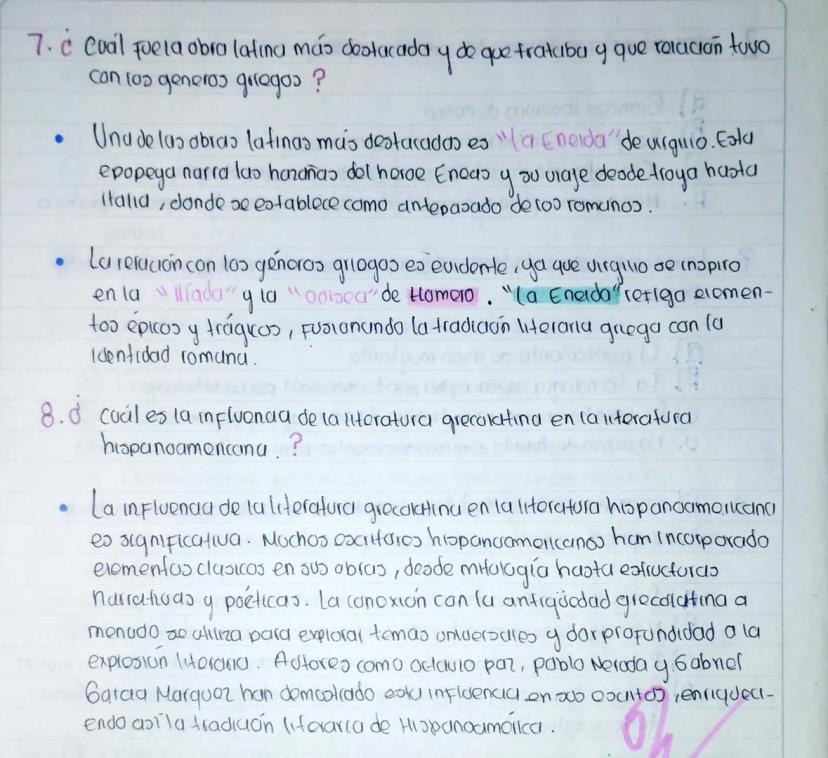 7. ¿ Cuál fue la obra latina más destacada y de que trataba y que relación tuvo
con los generos griegos ?
• Una de las obras latinas más destacadas es "la Eneida" de virgilio. Esta
epopeya narra las hazañas del heroe Eneas y su viaje desde troya hasta
italia, donde se establece como antepasado de los romanos.
• La relación con los géneros griegos es evidente, ya que virgilio se inspiro
en la "Ilíada" y la "odisea" de Homero. "la Eneida" refleja elemen-
tos épicos y trágicos, fusionando la tradición literaria griega con la
identidad romana.
8. ¿ cuál es la influencia de la literatura grecolatina en la literatura
hispanoamericana. ?
• La influencia de la literatura grecolatina en la literatura hispanoamericana
es significativa. Muchos escritores hispanoamericanos han incorporado
elementos clasicos en sus obras, desde mitología hasta estructuras
narrativas y poéticas. La conexión con la antigüedad grecolatina a
menudo se utiliza para explorar temas universales y dar profundidad a la
explosión literaria. Autores como octavio paz, pablo Neruda y Gabriel
Garcia Marquez han demostrado esta influencia en sus escritos, enriqueci-
endo así la tradición literaria de Hispanoamérica.